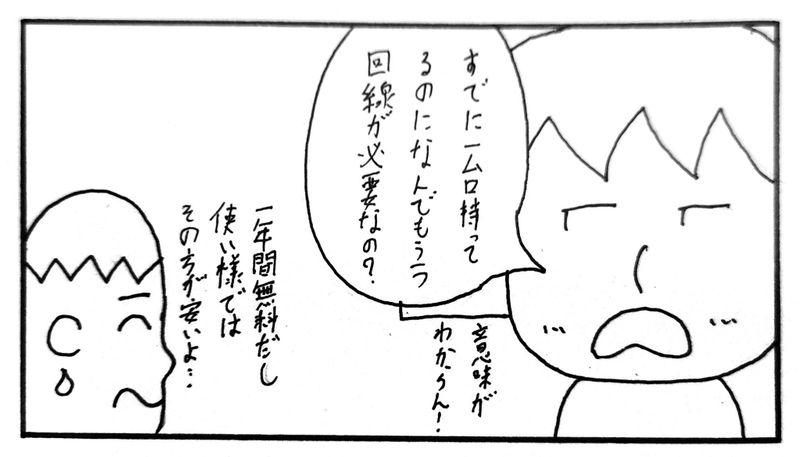 すでに一台持って
るのになんでもう一つ
回線が必要なの?
意味が
わからん!
一年間無料だし
使い様では
その方が安いよ…